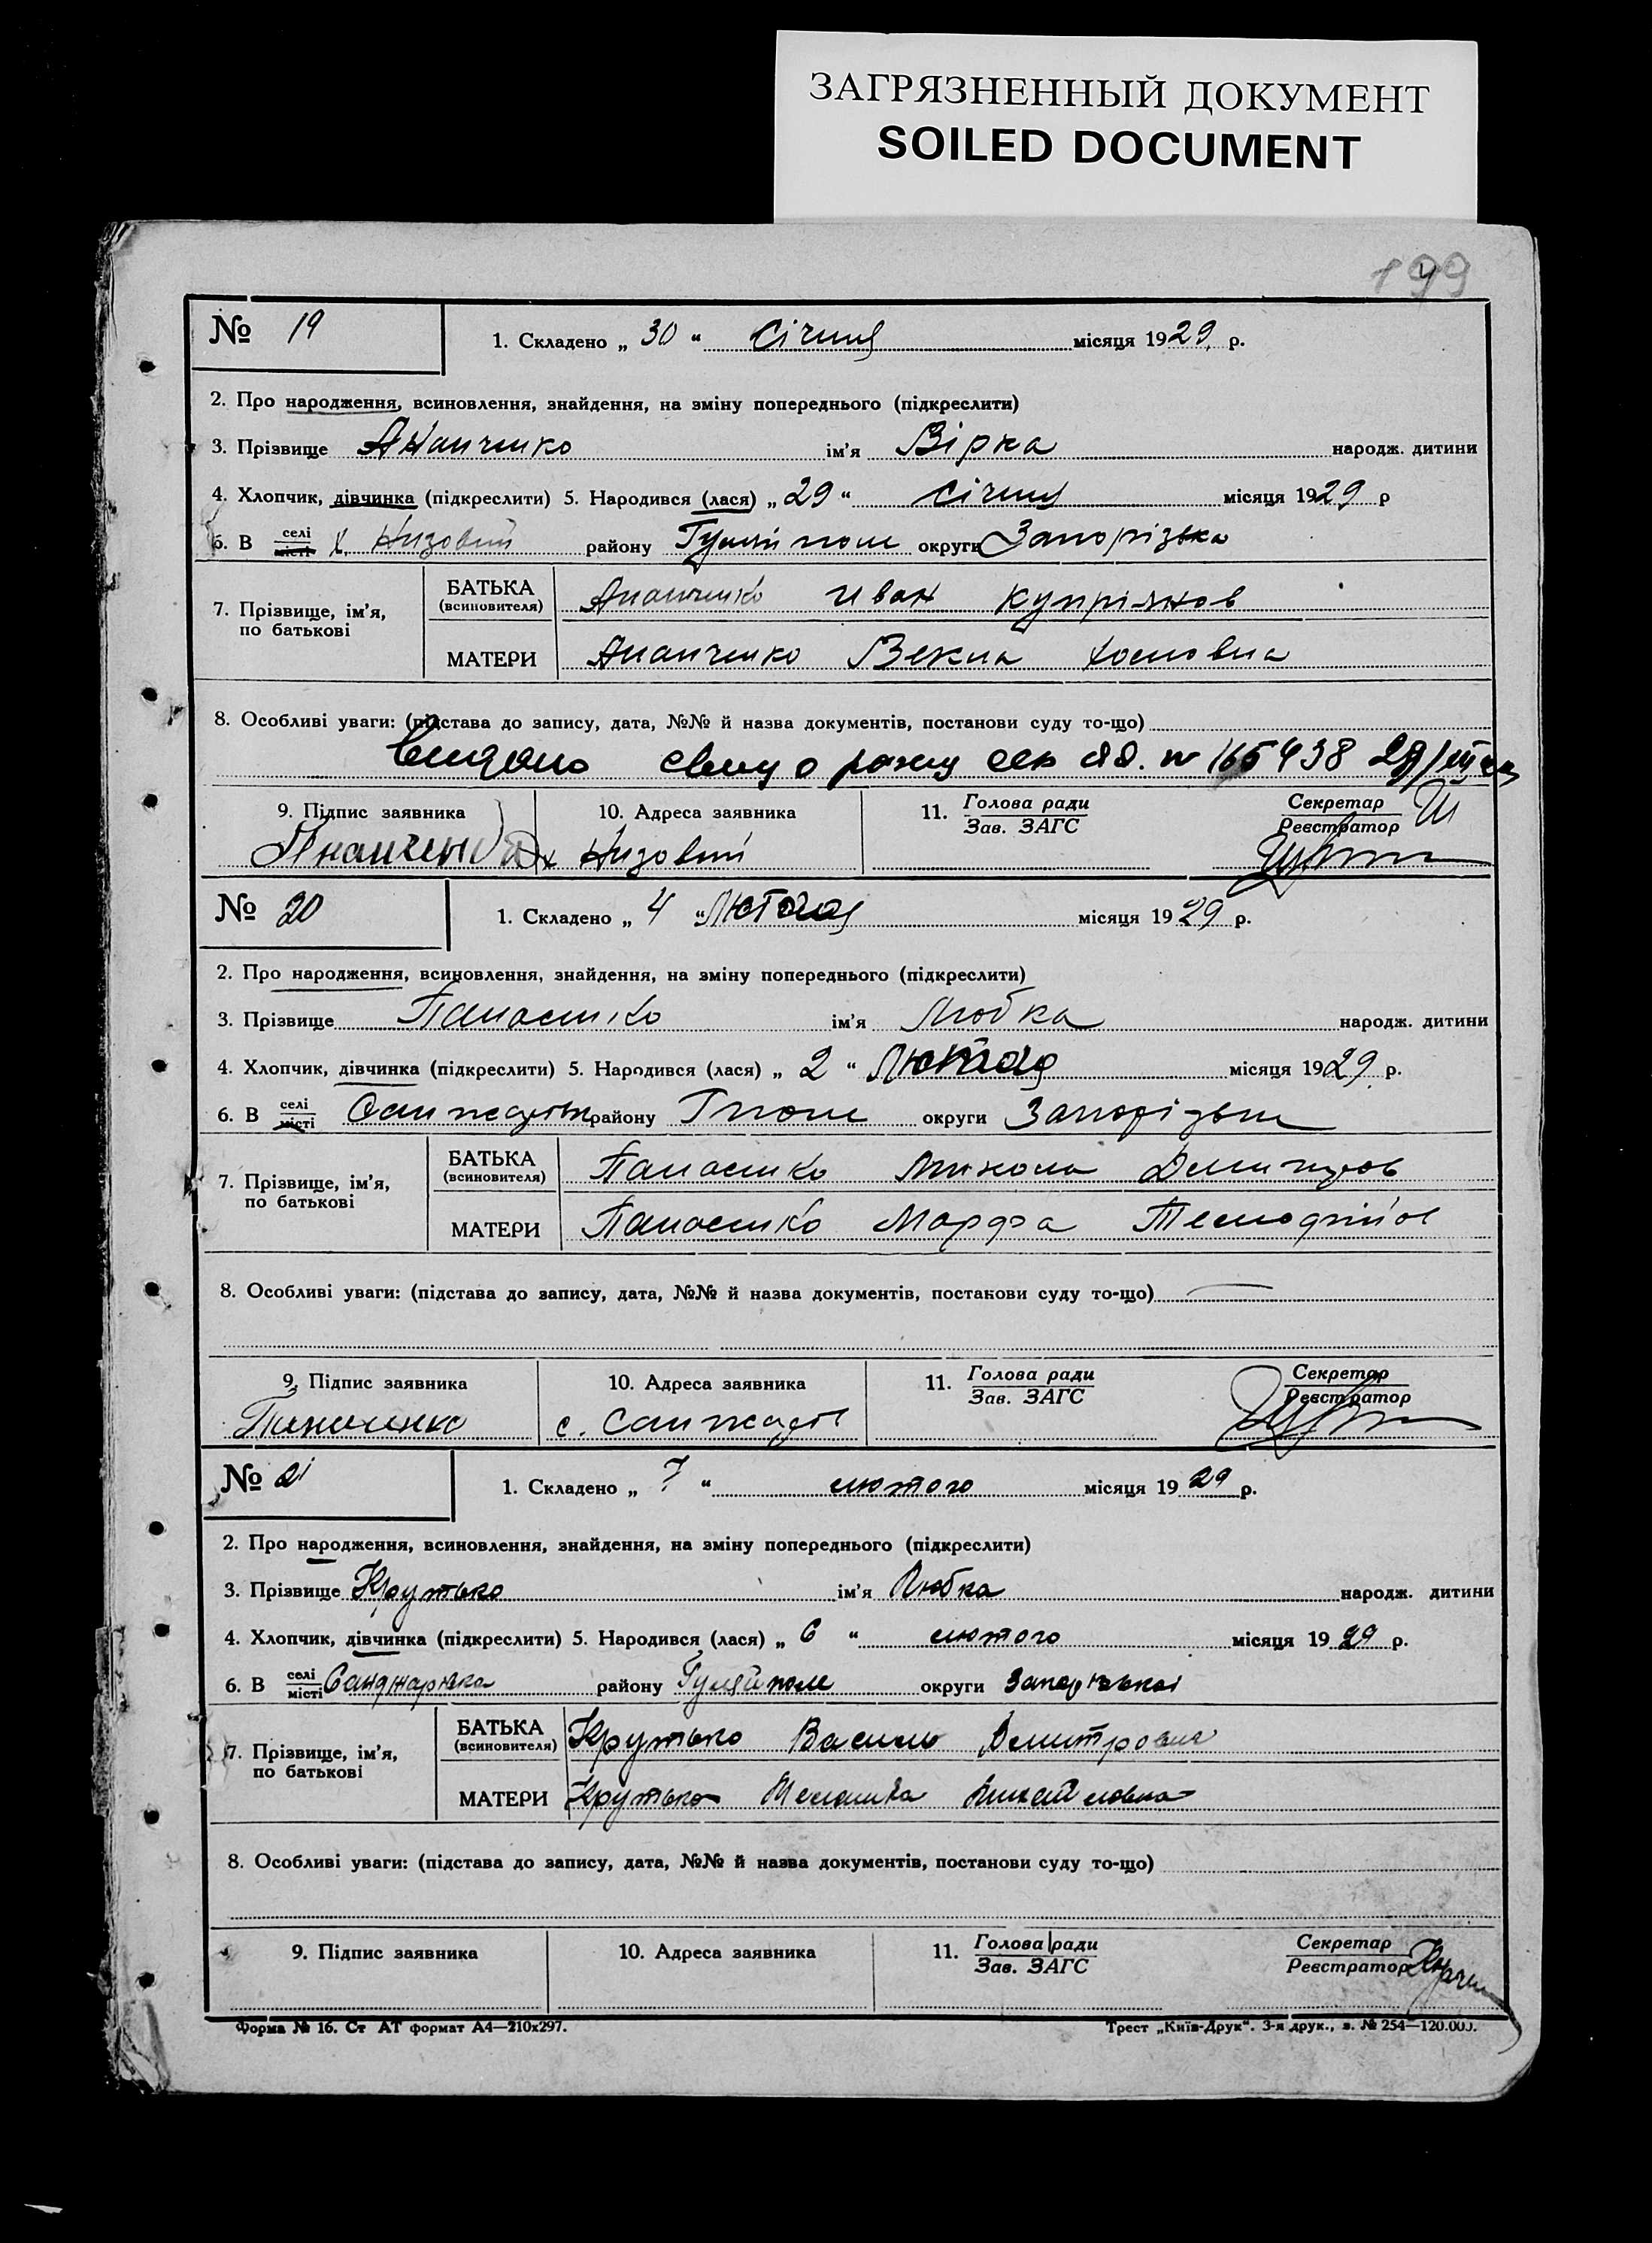 ЗАГРЯЗНЕННЫЙ ДОКУМЕНТ
SOILED DOCUMENT
199
№ 19
1. Складено „ 30 “ Січня місяця 1929. р.
2. Про народження, всиновлення, знайдення, на зміну попереднього (підкреслити)
3. Прізвище Ананченко ім'я Вірка народж. дитини
4. Хлопчик, дівчинка (підкреслити) 5. Народився (лася) „ 29 “ Січня місяця 1929 р
6. В селі місті х. Низовий району Гуляй поле округи Запорізька
7. Прізвище, ім'я, по батькові
БАТЬКА (всиновителя) Ананченко Иван Купріянов
МАТЕРИ Ананченко Векла
8. Особливі уваги: (підстава до запису, дата, №№ й назва документів, постанови суду то-що)
Видано о 165438
9. Підпис заявника
10. Адреса заявника
11. Голова ради Зав. ЗАГС
Секретар Реєстратор
х Низовий
№ 20
1. Складено „ 4 “ Лютого місяця 1929 р.
2. Про народження, всиновлення, знайдення, на зміну попереднього (підкреслити)
3. Прізвище Панасенко ім'я Любка народж. дитини
4. Хлопчик, дівчинка (підкреслити) 5. Народився (лася) „ 2 “ Лютого місяця 1929 р.
6. В селі місті району Гполе округи Запорізька
7. Прізвище, ім'я, по батькові
БАТЬКА (всиновителя) Панасенко Микола
МАТЕРИ Панасенко Марфа
8. Особливі уваги: (підстава до запису, дата, №№ й назва документів, постанови суду то-що)
9. Підпис заявника
10. Адреса заявника
11. Голова ради Зав. ЗАГС
Секретар Реєстратор
с.
№ 21
1. Складено „ 7 “ лютого місяця 1929 р.
2. Про народження, всиновлення, знайдення, на зміну попереднього (підкреслити)
3. Прізвище Крутько ім'я Любка народж. дитини
4. Хлопчик, дівчинка (підкреслити) 5. Народився (лася) „ 6 “ лютого місяця 1929 р.
6. В селі місті Санджарівка району Гуляйполе округи
7. Прізвище, ім'я, по батькові
БАТЬКА (всиновителя) Крутько Василь Дмитрович
МАТЕРИ Крутько
8. Особливі уваги: (підстава до запису, дата, №№ й назва документів, постанови суду то-що)
9. Підпис заявника
10. Адреса заявника
11. Голова ради Зав. ЗАГС
Секретар Реєстратор
Форма № 16. Ст АТ формат А4—210х297.
Трест „Київ-Друк“. 3-я друк., з. № 254—120.000.